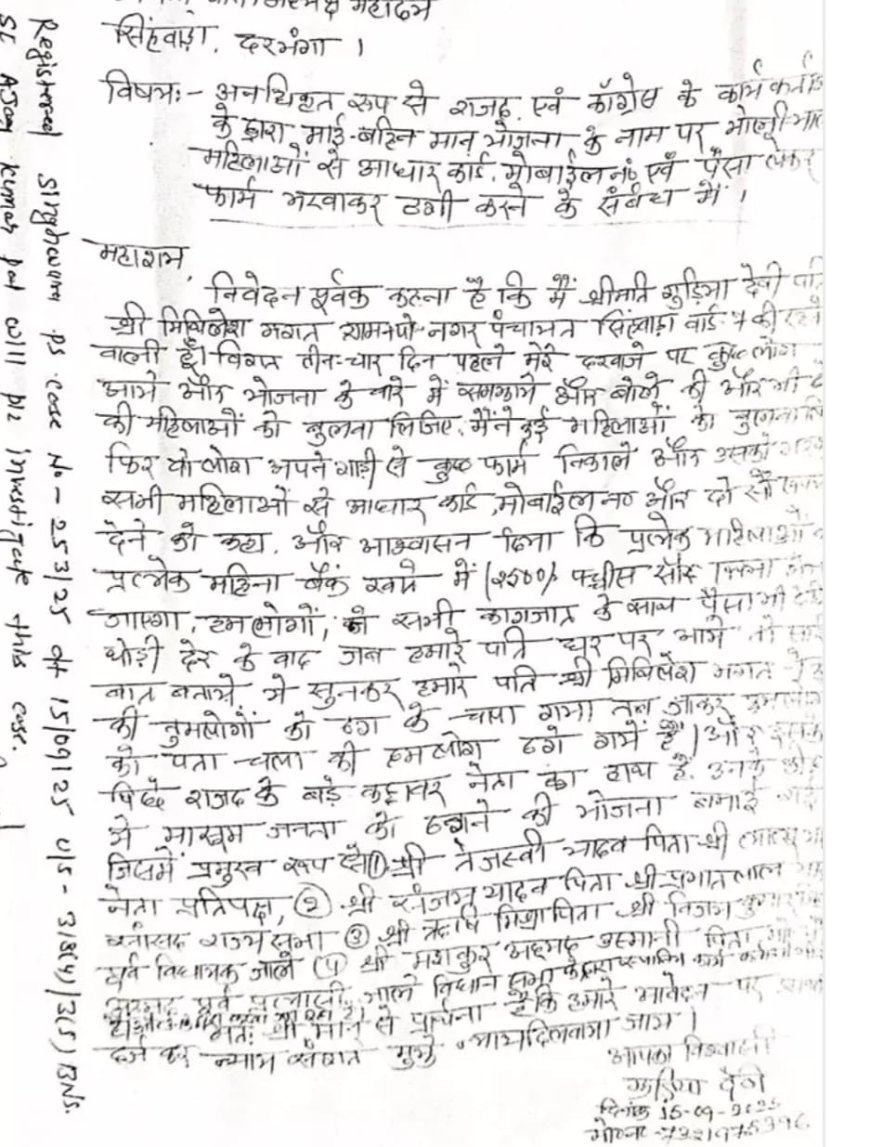 सिंहवाड़ा, दरभंगा ।
विषय:- अनधिकृत रूप से राजद एवं काँग्रेस के कार्यकर्ता
के द्वारा माई-बहिन मान योजना के नाम पर भोली
महिलाओं से आधार कार्ड, मोबाईल नं० एवं पैसा लेकर
फार्म भरवाकर ठगी करने के संबंध में ।
महाशय,
निवेदन पूर्वक कहना है कि मैं श्रीमति गुड़िया देवी पति
श्री मिथिलेश भगत नगर पंचायत सिंहवाड़ा वार्ड-
वाली हूँ। विगत तीन-चार दिन पहले मेरे दरवाजे पर कुछ लोग
आये और योजना के बारे में समझाये और बोले की और भी
की महिलाओं को बुलवा लिजिए, मैंने कई महिलाओं को
फिर वो लोग अपने गाड़ी से कुछ फार्म निकाले और उसको
सभी महिलाओं से आधार कार्ड, मोबाईल नं० और दो सौ
देने को कहा, और आश्वासन दिया कि प्रत्येक महिलाओं
प्रत्येक महिना बैंक खाते में (2500/ पच्चीस सौ
जाएगा, हमलोगों, ने सभी कागजात के साथ पैसा भी
थोड़ी देर के बाद जब हमारे पति घर पर आये तो
बात बताये, ये सुनकर हमारे पति श्री मिथिलेश भगत
की तुमलोगों को ठग के चला गया तब जाकर हमलोग
को पता चला की हमलोग ठगे गये हैं। और इसके
पिछे राजद के बड़े कद्दावर नेता का हाथ है, उनके
ये मासूम जनता को ठगने की योजना बनाई
जिसमें प्रमुख रूप से ① श्री तेजस्वी यादव पिता श्री
नेता प्रतिपक्ष, ② श्री संजय यादव पिता श्री प्रभातलाल
सांसद राज्यसभा ③ श्री ऋषि मिश्रा पिता श्री विजय कुमार
पूर्व विधायक जाले (4) श्री मशकुर अहमद उस्मानी पिता
पूर्व प्रत्याशी जाले विधान सभा
अतः श्रीमान से प्रार्थना है कि हमारे आवेदन पर
दर्ज कर न्याय संगत मुझे न्याय दिलवाया जाय।
आपका विश्वासी
गुड़िया देवी
दिनांक 15-09-2025
Registered Singhwara PS case No- 253/25 dt 15/09/25 u/s- 318(4)/3(5) BNS.
SI AJay kumar pal will plz investigate this case.